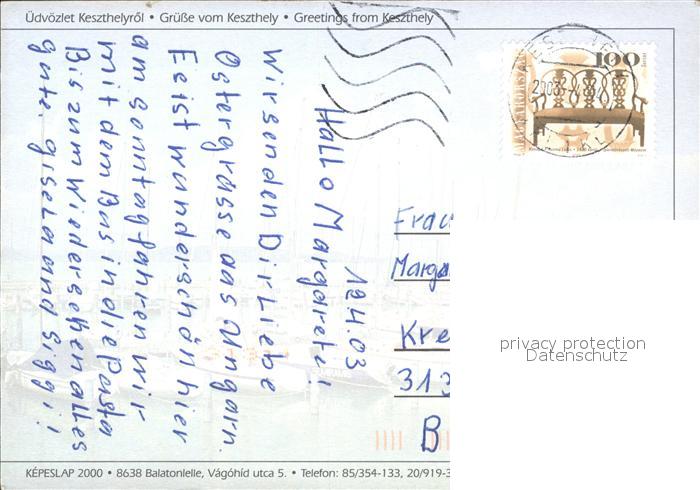 Üdvözlet Keszthelyről • Grüße vom Keszthely • Greetings from Keszthely
19.4.03
Hallo Margarete!!
Wir senden Dir Liebe
Ostergrüsse aus Ungarn.
Es ist wunderschön hier
am Sonntag fahren wir
mit dem Bus in die Pusta
Bis zum Wiedersehen alles
gute. Gisela und Siggi!
100
MAGYARORSZÁG
Frau
Marga
Kre
313
B
privacy protection
Datenschutz
KÉPESLAP 2000 • 8638 Balatonlelle, Vágóhíd utca 5. • Telefon: 85/354-133, 20/919-3